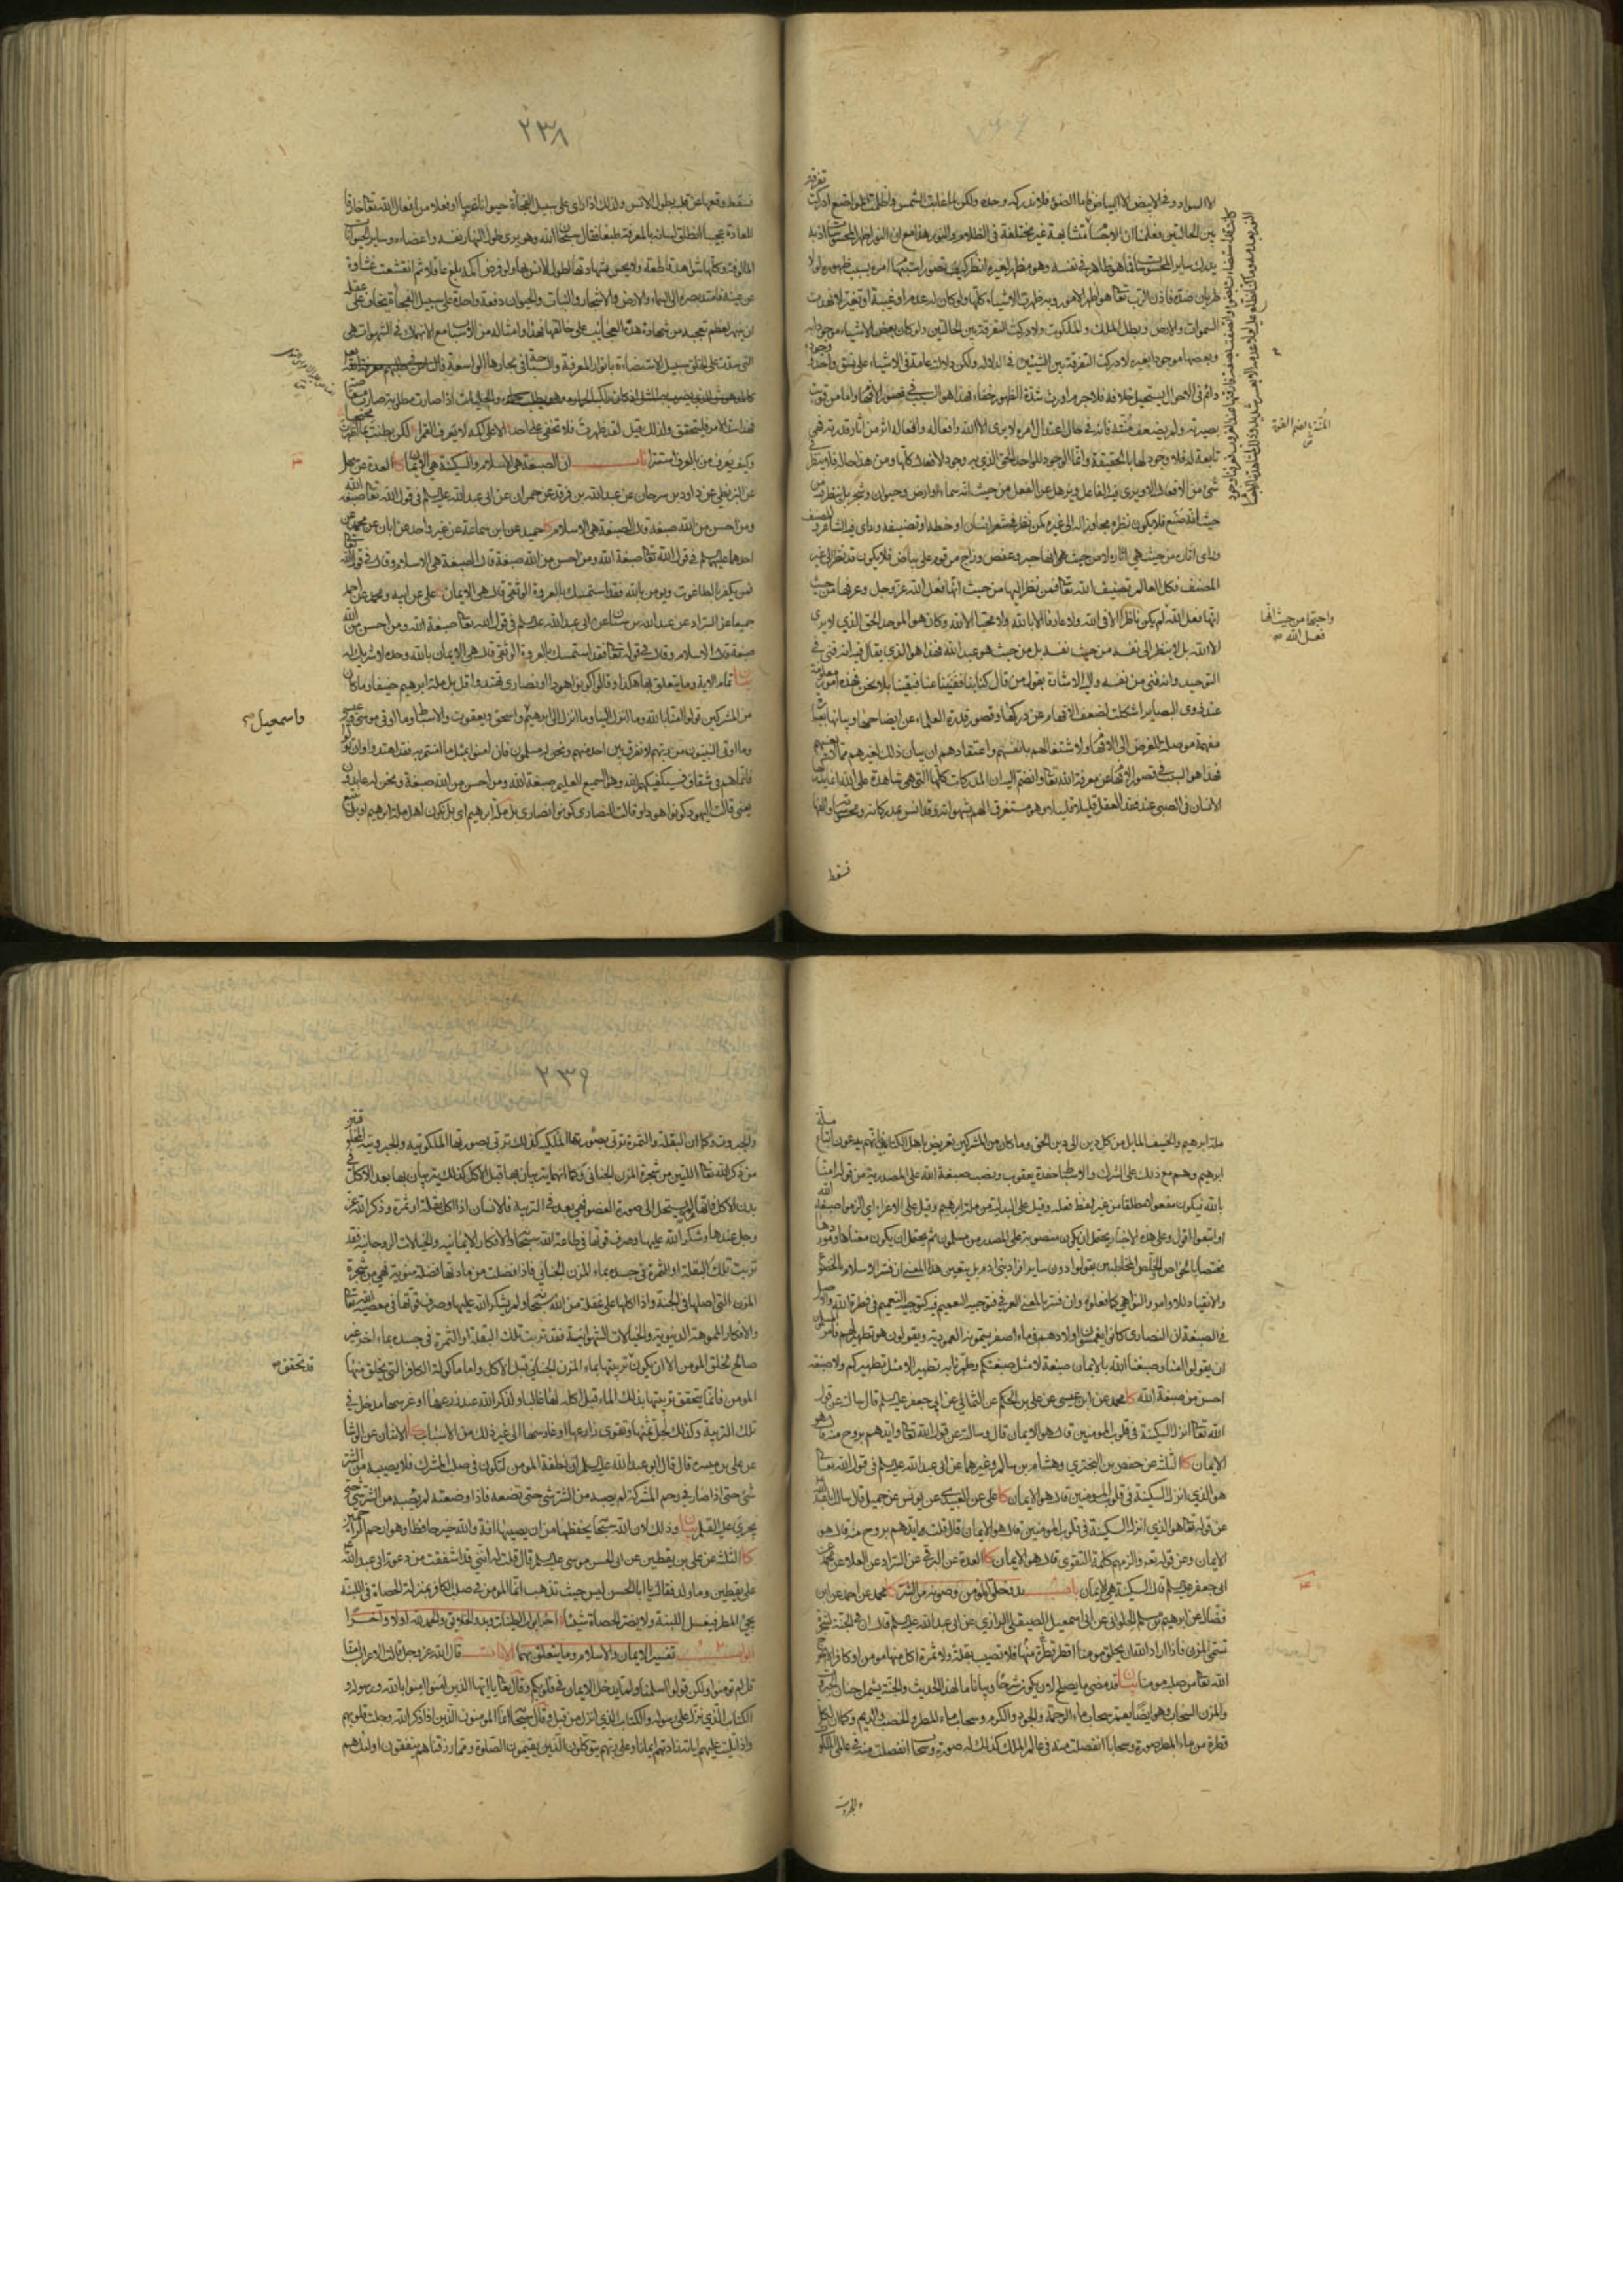 تفرقة
الا السواد وفي الابيض الا البياض فاما الضوء فلا ندركه وحده ولكن لما غابت الشمس واظلمت المواضع ادركت
بين الحالتين فعلمنا ان الاجسام
السموات والارض وبطل الملك والملكوت ولادركت التفرقة بين الحالتين ولو كان بعض الاشياء موجودا به
وبعضها موجودا بغيره لادركت التفرقة بين الشيئين في الدلالة ولكن دلالته عامة في الاشياء على نسق واحد ووجوده
دائم في الاحوال يستحيل خلافه فلا جرم اورث شدة الظهور خفاء فهذا هو السبب في قصور الافهام اما من قويت
بصيرته ولم يضعف منته فانه في حال اعتدال امره لا يرى الا الله وافعاله وافعاله اثر من آثار قدرته فهي
تابعة له فلا وجود لها بالحقيقة وانما الوجود للواحد الحق الذي به وجود الافعال كلها ومن هذا حاله فلا ينظر في
شيء من الافعال الا ويرى فيه الفاعل ويذهل عن الفعل من حيث انه سماء وارض وحيوان وشجر بل ينظر فيه من
حيث انه صنع فلا يكون نظره مجاوزا له الى غيره كمن نظر في شعر انسان او خطه او تصنيفه وراى فيه الشاعر والمصنف
وراى آثاره من حيث هي آثاره لا من حيث هي انها حبر وعفص وزاج مرقوم على بياض فلا يكون قد نظر الى غير
المصنف فكل العالم تصنيف الله تعالى فمن نظر اليها من حيث انها فعل الله عز وجل وعرفها من حيث
انها فعل الله لم يكن ناظرا الا في الله ولا عارفا الا بالله ولا محبا الا لله وكان هو الموحد الحق الذي لا يرى
الا الله بل لا ينظر الى نفسه من حيث نفسه بل من حيث هو عبد الله فهذا هو الذي يقال فيه انه فني في
التوحيد وانه فني من نفسه واليه الاشارة بقول من قال كنا بنا ففنينا عنا فبقينا بلا نحن فهذه امور معلومة
عند ذوي البصائر اشكلت لضعف الافهام عن دركها وقصور قدرة العلماء عن ايضاحها وبيانها بعبارة
مفهمة موصلة للغرض الى الافهام ولاشتغالهم بانفسهم واعتقادهم ان بيان ذلك لغيرهم مما لا يعنيهم
فهذا هو السبب في قصور الافهام عن معرفة الله تعالى وانضم اليه ان المدركات كلها التي هي شاهدة على الله انما يدركها
الانسان في الصبى عند فقد العقل قليلا قليلا وهو مستغرق الهم بشهواته وقد انس بمدركاته ومحسوساته والفها
فسقط
المنة بالضم القوة
واحبها من حيث انها
فعل الله
٢٣٨
فسقط وقعها عن قلبه بطول الانس ولذلك اذا راى على سبيل الفجأة حيوانا غريبا او فعلا من افعال الله تعالى خارقا
للعادة عجيبا انطلق لسانه بالمعرفة طبعا فقال سبحان الله وهو يرى طول النهار نفسه واعضاءه وساير الحيوانات
المالوفة وكلها شواهد قاطعة ولا يحس بشهادتها لطول الانس بها ولو فرض اكمه بلغ عاقلا ثم انقشعت غشاوة
عن عينه فامتد بصره الى السماء والارض والاشجار والنبات والحيوان دفعة واحدة على سبيل الفجأة يخاف على عقله
ان ينبهر لعظم تعجبه من شهادة هذه العجايب على خالقها فهذا وامثاله من الاسباب مع الانهماك في الشهوات هي
التي سدت على الخلق سبيل الاستضاءة بانوار المعرفة والسباحة في بحارها الواسعة
والجليات اذا صارت مطلوبة صارت معتاصة
فهذا سر الامر فليتحقق ولذلك قيل لقد ظهرت فلا تخفى على احد الا على اكمه لا يعرف القمرا لكن بطنت بما اظهرت محتجبا
وكيف يعرف من بالعرف استترا باب ان الصبغة هي الاسلام والسكينة هي الايمان كا العدة عن سهل
عن البزنطي عن داود بن سرحان عن عبدالله بن فرقد عن حمران عن ابي عبدالله عليه السلم في قول الله تعالى صبغة الله
ومن احسن من الله صبغة قال الصبغة هي الاسلام كا حميد عن ابن سماعة عن غير واحد عن ابان عن محمد عن
احدهما عليهما السلم في قول الله تعالى صبغة الله ومن احسن من الله صبغة قال الصبغة هي الاسلام وقال في قول الله تعالى
فمن يكفر بالطاغوت ويومن بالله فقد استمسك بالعروة الوثقى قال هي الايمان كا علي عن ابيه ومحمد عن احمد
جميعا عن السراد عن عبدالله بن سنان عن ابي عبدالله عليه السلم في قول الله تعالى صبغة الله ومن احسن من الله
صبغة قال الاسلام وقال في قوله تعالى فقد استمسك بالعروة الوثقى قال هي الايمان بالله وحده لا شريك له
بيان تمام الاية وما يتعلق بها هكذا وقالوا كونوا هودا او نصارى تهتدوا قل بل ملة ابراهيم حنيفا وما كان
من المشركين قولوا امنا بالله وما انزل الينا وما انزل الى ابرهيم واسحق ويعقوب والاسباط وما اوتي موسى وعيسى
وما اوتي النبيون من ربهم لا نفرق بين احد منهم ونحن له مسلمون فان امنوا بمثل ما امنتم به فقد اهتدوا وان تولوا
فانما هم في شقاق فسيكفيكهم الله وهو السميع العليم صبغة الله ومن احسن من الله صبغة ونحن له عابدون
يعني قالت اليهود كونوا هودا وقالت النصارى كونوا نصارى بل ملة ابراهيم اي بل نكون اهل ملة ابراهيم او بل نتبع
واسمعيل
ملة
ملة ابراهيم والحنيف المايل من كل دين الى دين الحق وما كان من المشركين تعريض باهل الكتاب فانهم يدعون اتباع
ابرهيم وهم مع ذلك على الشرك والاسباط حفدة يعقوب ونصب صبغة الله على المصدرية من قوله امنا
بالله فيكون مفعولا مطلقا من غير لفظ فعله وقيل على البدلية من ملة ابرهيم وقيل على الاغراء اي الزموا صبغة الله
في الصبغة ان النصارى كانوا يغمسون اولادهم في ماء اصفر يسمونه المعمودية ويقولون هو تطهير لهم فامر المسلمون
ان يقولوا امنا وصبغنا الله بالايمان صبغة لا مثل صبغتكم وطهرنا به تطهيرا لا مثل تطهيركم ولا صبغة
احسن من صبغة الله كا محمد عن ابن عيسى عن علي بن الحكم عن الثمالي عن ابي جعفر عليه السلم قال سالته عن قول
الله تعالى انزل السكينة في قلوب المومنين قال هو الايمان قال وسالته عن قول الله تعالى وايدهم بروح منه قال هو
الايمان كا الثلثة عن حفص بن البختري وهشام بن سالم وغيرهما عن ابي عبدالله عليه السلم في قول الله تعالى
هو الذي انزل السكينة في قلوب المومنين قال هو الايمان كا علي عن العبيدي عن يونس عن جميل قال سالت ابا عبدالله
عن قوله تعالى هو الذي انزل السكينة في قلوب المومنين قال هو الايمان قال قلت وايدهم بروح منه قال هو
الايمان وعن قوله تعالى والزمهم كلمة التقوى قال هو الايمان كا العدة عن البرقي عن السراد عن العلاء عن محمد عن
ابي جعفر عليه السلم قال السكينة هي الايمان باب بدو خلق المومن وصونه من الشر كا محمد عن احمد عن ابن
فضال عن ابرهيم بن مسلم الحلواني عن ابي اسمعيل الصيقل الرازي عن ابي عبدالله عليه السلم قال ان في الجنة لشجرة
تسمى المزن فاذا اراد الله ان يخلق مومنا اقطر منها قطرة فلا تصيب بقلة ولا ثمرة اكل منها مومن او كافر الا اخرج
الله تعالى من صلبه مومنا بيان قد مضى ما يصلح لان يكون شرحا وبيانا لهذا الحديث والجنة يشمل جنان الجبروت
والمزن السحاب وهو ايضا يعم سحاب ماء الرحمة والجود والكرم وسحاب ماء المطر والخصب والديم وكما ان لكل
قطرة من ماء المطر صورة وسحابا انفصلت منه في عالم الملك كذلك له صورة وسحابا انفصلت منه في عالمي الملكوت
والجبروت
٢٣٩
والجبروت وكما ان البقلة والثمرة تربى بصورتها الملكية كذلك تربى بصورتها الملكوتية والجبروتية المخلوقتين
من ذكر الله تعالى اللتين من شجرة المزن الجناني وكما انهما يتربيان بها قبل الاكل كذلك يتربيان بها بعد الاكل في
بدن الاكل فانها ما لم يستحل الى صورة العضو فهي بعد في التربية فالانسان اذا اكل بقلة او ثمرة وذكر الله عز
وجل عندها وشكر الله عليها وصرف قوتها في طاعة الله سبحانه والافكار الايمانية والخيالات الروحانية فقد
تربت تلك البقلة او الثمرة في جسده بماء المزن الجناني فاذا فضلت من مادتها فضلة منوية فهي من شجرة
المزن التي اصلها في الجنة واذا اكلها على غفلة من الله سبحانه ولم يشكر الله عليها وصرف قوتها في معصية الله تعالى
والافكار المموهة الدنيوية والخيالات الشهوانية فقد تربت تلك البقلة او الثمرة في جسده بماء اخر غير
صالح لخلق المومن الا ان يكون تربيتها بماء المزن الجناني قبل الاكل واما ماكولة الكافر التي يخلق منها
المومن فانما يتحقق تربيتها بذلك الماء قبل اكله لها غالبا ولذكر الله عند زرعها او غرسها مدخل في
تلك التربية وكذلك لحل ثمنها وتقوى زارعها او غارسها الى غير ذلك من الاسباب كا الاثنان عن الوشا
عن علي بن ميسرة قال قال ابو عبدالله عليه السلم ان نطفة المومن لتكون في صلب المشرك فلا يصيبه من الشر
شيء حتى اذا صار في رحم المشركة لم يصبه من الشر شيء حتى تضعه فاذا وضعته لم يصبه من الشر شيء حتى
يجري عليه القلم بيان وذلك لان الله سبحانه يحفظها من ان يصيبها آفة والله خير حافظا وهو ارحم الراحمين
كا الثلثة عن علي بن يقطين عن ابي الحسن موسى عليه السلم قال قلت له انني قد اشفقت من دعوة ابي عبدالله
على يقطين وما ولد فقال يا ابا الحسن ليس حيث تذهب انما المومن في صلب الكافر بمنزلة الحصاة في اللبنة
يجيء المطر فيغسل اللبنة ولا يضر الحصاة شيئا اخر ابواب الطينات وبدو الخلايق والحمد لله اولا وآخرا
ابواب تفسير الايمان والاسلام وما يتعلق بهما الايات قال الله عز وجل قالت الاعراب امنا
قل لم تومنوا ولكن قولوا اسلمنا ولما يدخل الايمان في قلوبكم وقال تعالى يا ايها الذين امنوا امنوا بالله ورسوله و
الكتاب الذي نزل على رسوله والكتاب الذي انزل من قبل وقال سبحانه انما المومنون الذين اذا ذكر الله وجلت قلوبهم
واذا تليت عليهم اياته زادتهم ايمانا وعلى ربهم يتوكلون الذين يقيمون الصلوة ومما رزقناهم ينفقون اولئك هم
قد تحقق